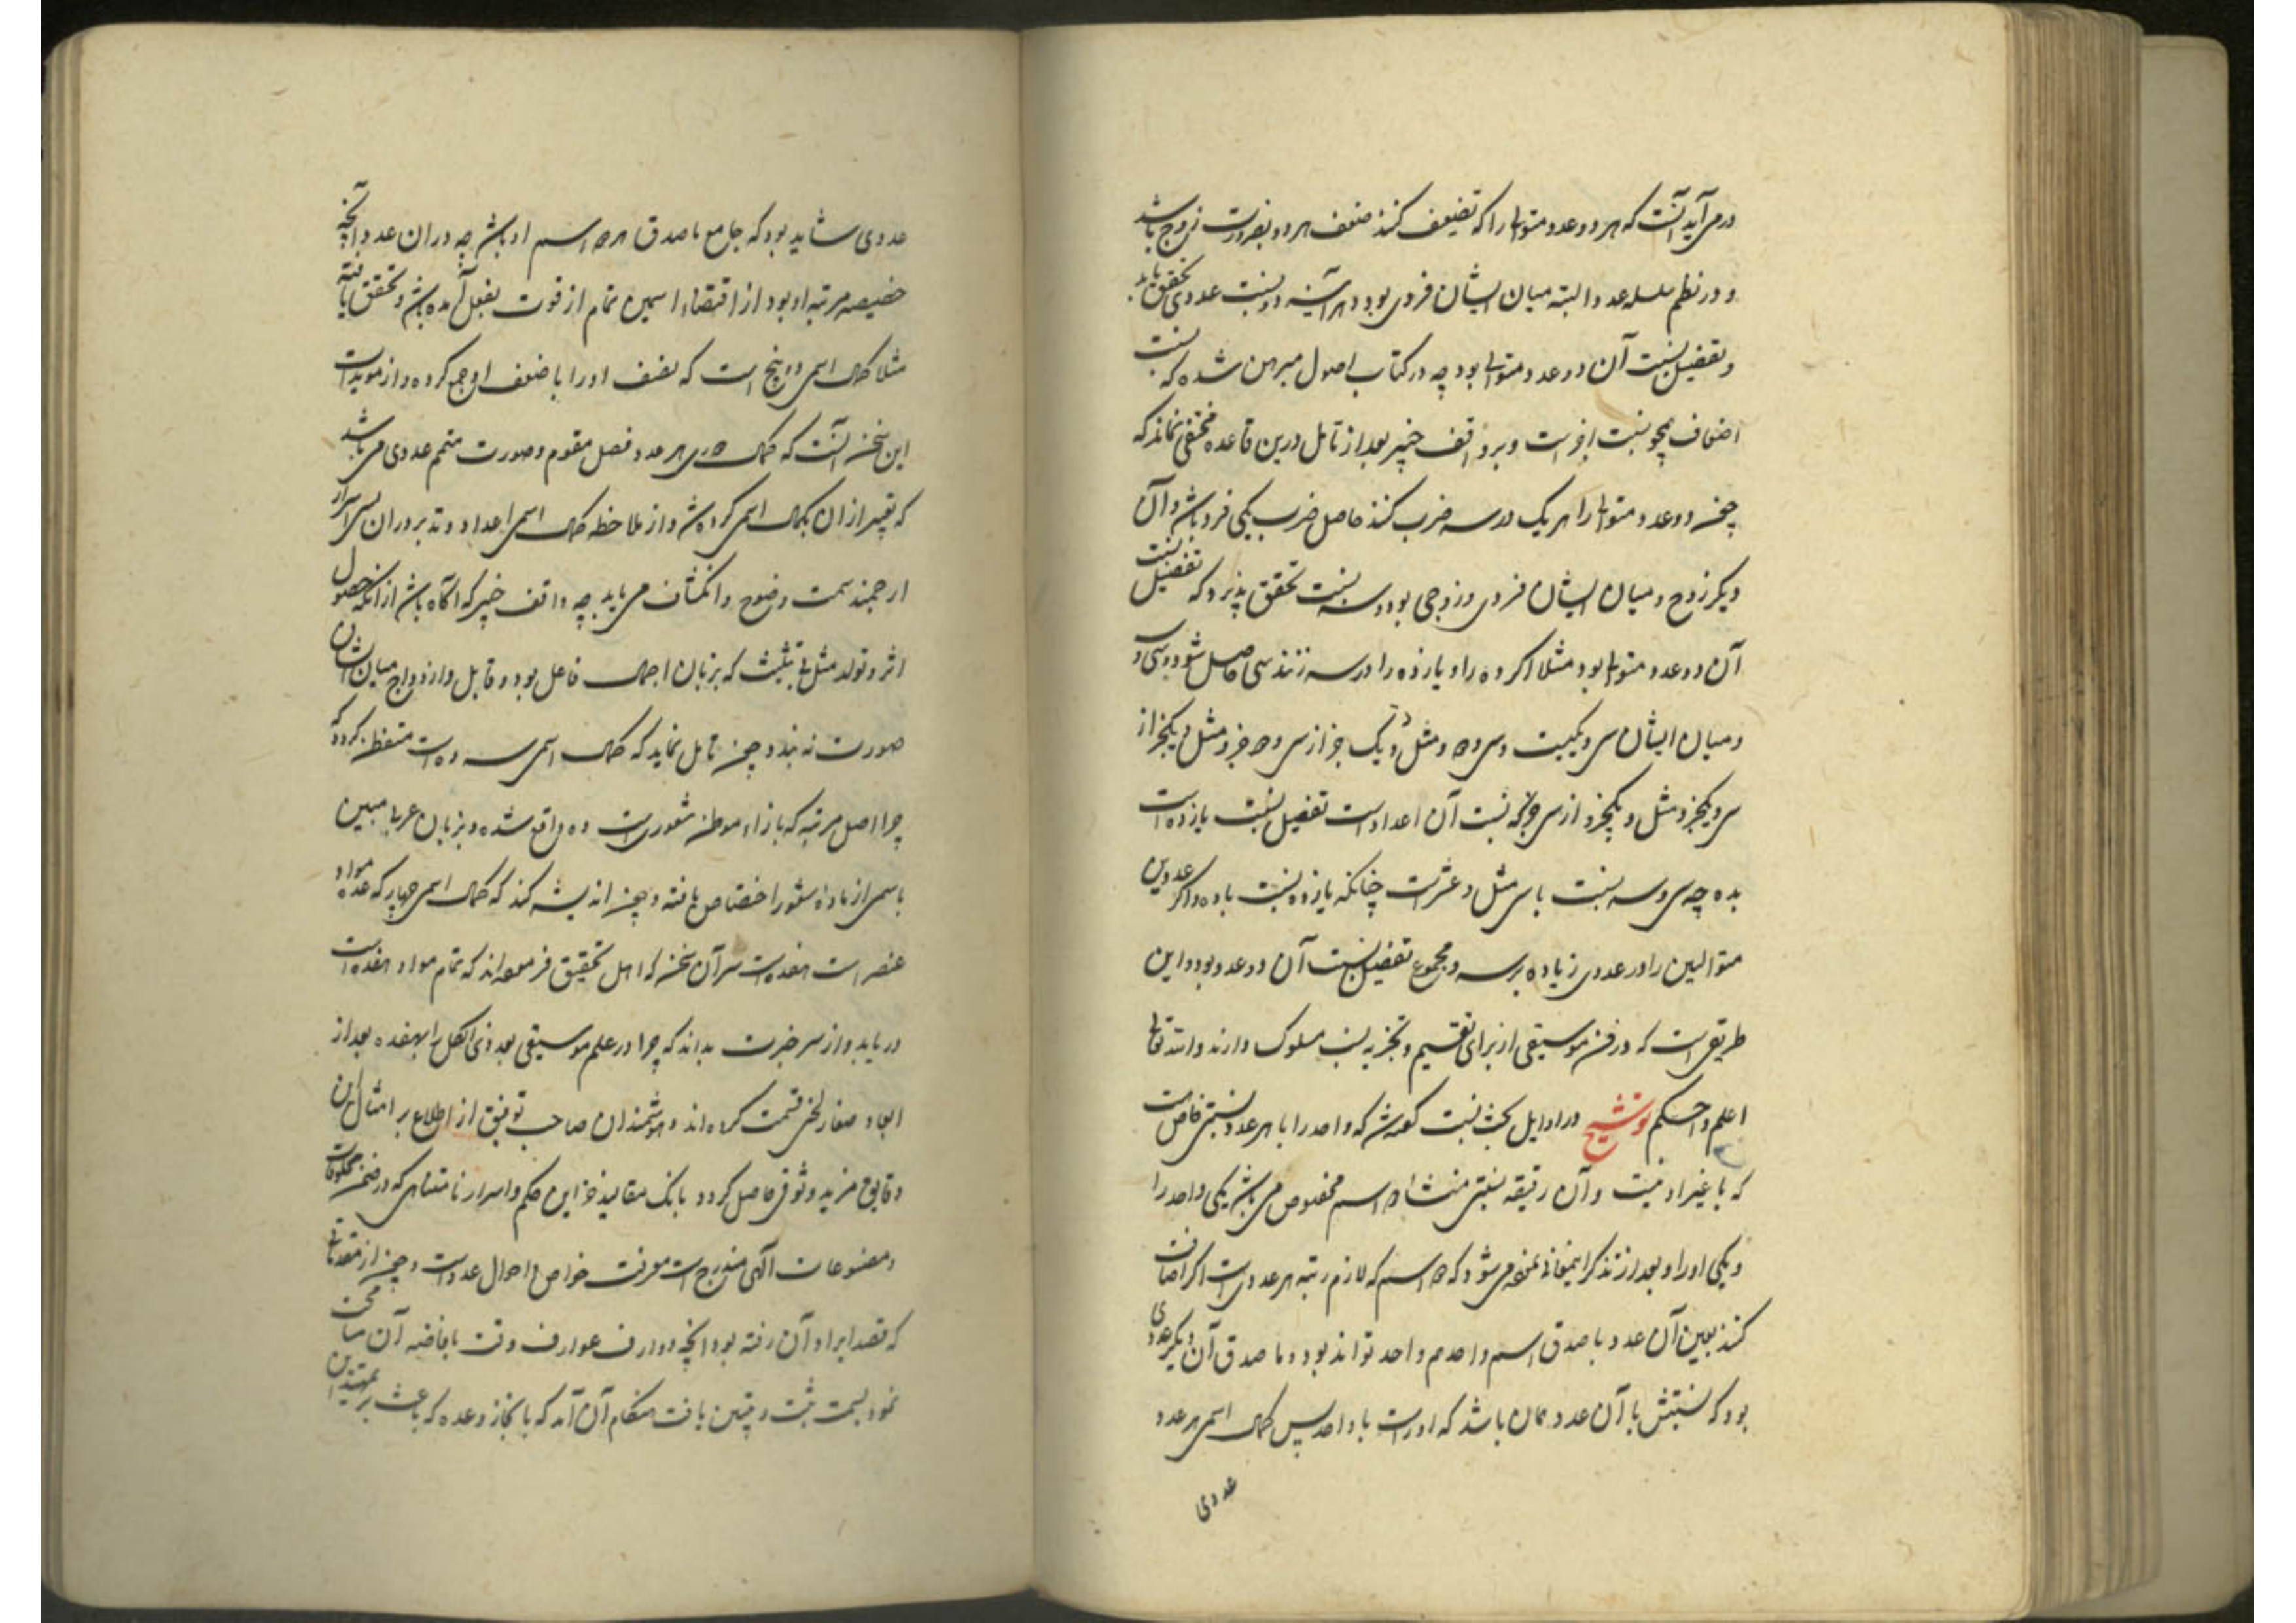 در می آید آنست که هر دو عدد متوالی را که تضعیف کنند ضعف هر دو بضرورت زوج باشد
و در نظم سلسله عدد البته میان ایشان فردی بود و هر آینه دو نسبت عددی تحقق یابد
و تفضیل نسبت آن دو عدد متوالی بود چه در کتاب اصول مبرهن شده که نسبت
اضعاف همچو نسبت اجزاست و بر واقف خبیر بعد از تامل درین قاعده مختفی نماند که
چون دو عدد متوالی را هر یک در سه ضرب کنند حاصل ضرب یکی فرد باشد و آن
دیگر زوج و میان ایشان فردی و زوجی بود و سه نسبت تحقق پذیرد که تفضیل نسبت
آن دو عدد متوالی بود مثلا اگر ده را و یازده را در سه زنند سی حاصل شود و سی و سه
و میان ایشان سی و یکیست و سی و دو و مثل و یک جزء از سی و دو جزء و مثل و یکجزء از
سی و یکجزء و مثل و یکجزء از سی جزء که نسبت آن اعداد است تفضیل نسبت یازده است
بده چه سی و سه نسبت با سی مثل و عشرست چنانکه یازده نسبت با ده و اگر عددین
متوالیین را در عددی زیاده بر سه و مجموع تفضیل نسبت آن دو عدد بود و این
طریقی است که در فن موسیقی از برای تقسیم و تجزیه نسب مسلوک دارند و الله تعالی
اعلم و احکم توشیح در اوایل بحث نسبت گفته شد که واحد را با هر عدد نسبتی خاص است
که با غیر او نیست و آن رقیقه نسبتی منشاء دو اسم مخصوص می باشد یکی واحد را
و یکی او را و بعد از تذکر این معانی نموده می شود که دو اسم که لازم رتبه هر عددی است اگر اضافت
کنند بعین آن عدد ما صدق اسم واحدهم واحد تواند بود و ما صدق آن دیگر عددی
بود که نسبتش با آن عدد همان باشد که او راست با واحد پس کمال اسمی هر عدد
عددی
عددی شاید بود که جامع ما صدق هر دو اسم او باشد چه در آن عدد آنچه
خصیصه مرتبه او بود از اقتضاء اسمین تمام از قوت بفعل آمده باشد و تحقق یافته
مثلا کمال اسمی دو پنج است که نصف او را با ضعف او جمع کرده و از مویدات
این سخن آنست که کمال هر عدد فصل مقوم و صورت متمم عددی می باشد
که تعبیر از آن بکمال اسمی کرده شد و از ملاحظه کمال اسمی اعداد و تدبر در آن بسی اسرار
ارجمند سمت وضوح و انکشاف می یابد چه واقف خبیر که آگاه باشد از آنکه حصول
اثر و تولد مثل بی تثلیث که بزبان اجمال فاعل بود و قابل و ازدواج میان ایشان
صورت نه بندد چون تامل نماید که کمال اسمی سه ده است متفطن گردد که
چرا اصل مرتبه که بازاء موطن شعوری است ده واقع شده و بزبان عربی مبین
باسمی از ماده شعور اختصاص یافته و چون اندیشه کند که کمال اسمی چهار که عده مواد
عنصر است هفده است سر آن سخن که اهل تحقیق فرموده اند که تمام مواد هفده است
دریابد و از سر خبرت بداند که چرا در علم موسیقی بعد ذی الکل را بهفده بعد از
ابعاد صغار لحنی قسمت کرده اند و هوشمندان صاحب توفیق از اطلاع بر امثال این
دقایق مزید وثوقی حاصل گردد بآنک مقالید خزاین حکم و اسرار نامتناهی که در ضمن مخلوقات
و مصنوعات الهی مندرج است معرفت خواص و احوال عدد است و چون از مقدمات
که قصد ایراد آن رفته بود آنچه وارف عوارف وقت بافاضه آن سماحت
نمود بسمت ثبت و تبیین یافت هنگام آن آمد که بانجاز وعده که باعث بر تمهید این